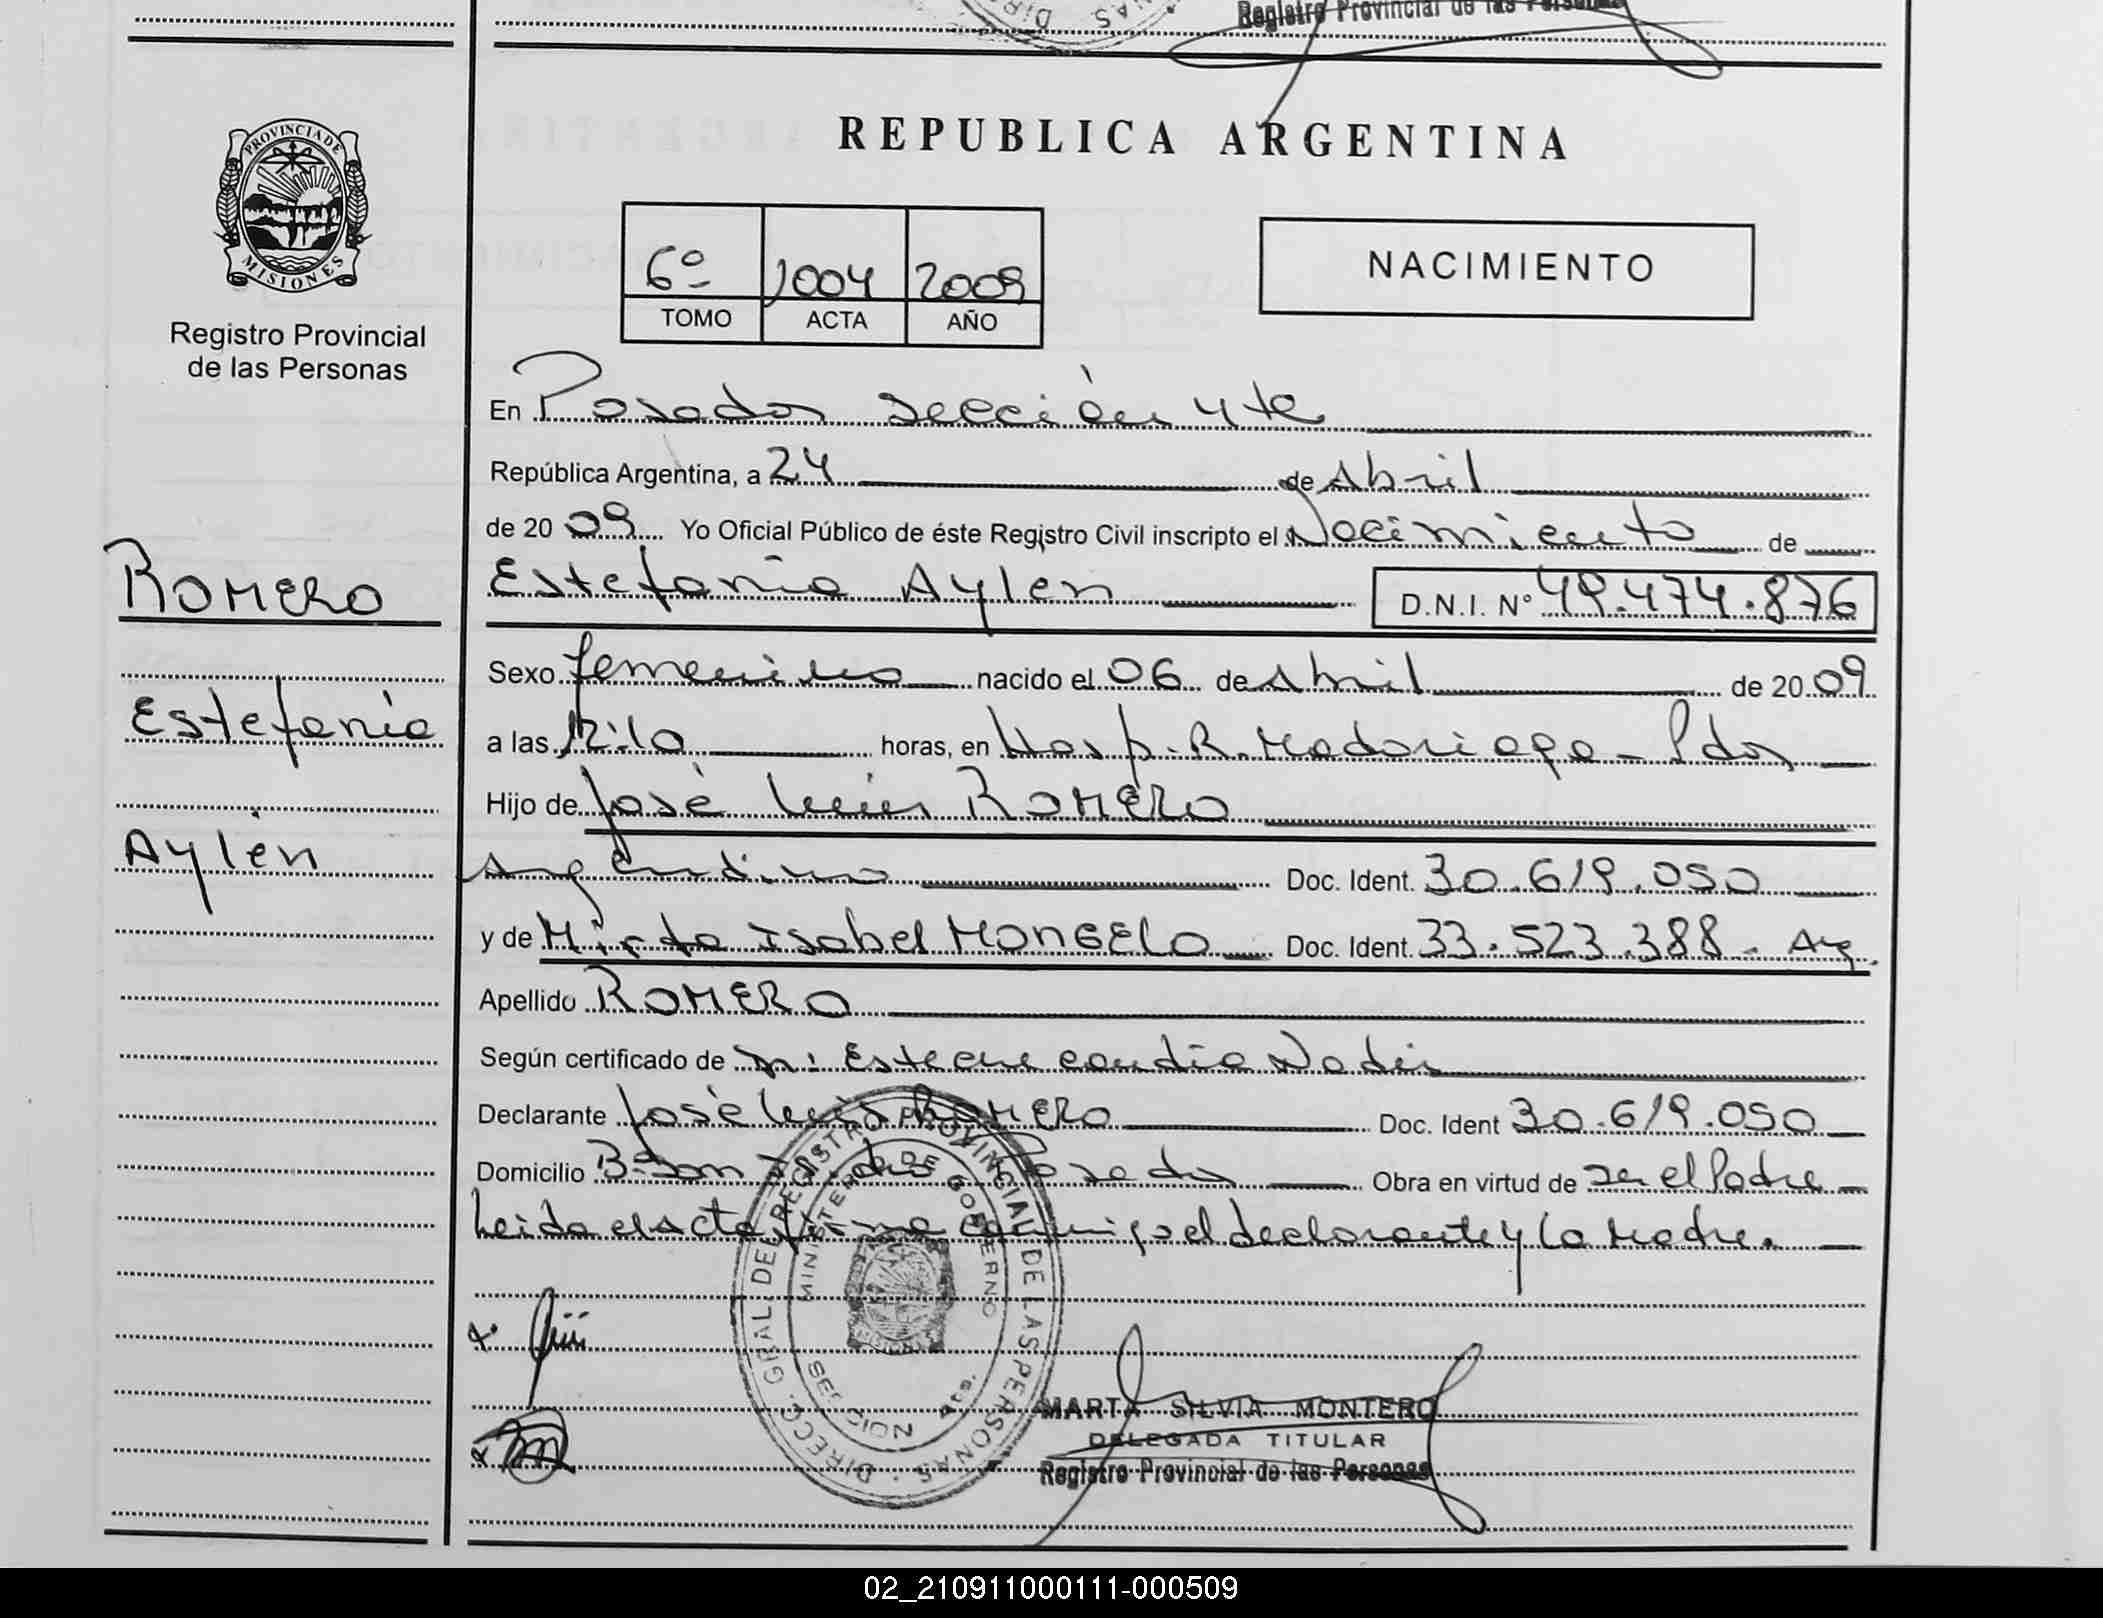 Registro Provincial de las Personas
PROVINCIA DE
MISIONES
Registro Provincial
de las Personas
REPUBLICA ARGENTINA
6º 1004 2009
TOMO ACTA AÑO
NACIMIENTO
En Posadas sección 4ta
República Argentina, a 24 de Abril
de 20 09 Yo Oficial Público de éste Registro Civil inscripto el Nacimiento de
Estefanía Aylen D.N.I. Nº 49.474.876
ROMERO
Estefanía
Aylén
Sexo femenino nacido el 06 de Abril de 20 09
a las 12:10 horas, en Hosp. R. Madariaga - Pdas
Hijo de José Luis ROMERO
Argentino Doc. Ident. 30.619.050
y de Mirta Isabel MONGELO Doc. Ident. 33.523.388 - Arg.
Apellido ROMERO
Según certificado de
Declarante José Luis ROMERO Doc. Ident 30.619.050
Domicilio Bº San Posadas Obra en virtud de ser el Padre
Leida el acta firma conmigo el declarante y la Madre.
DIRECC. GRAL. DEL REGISTRO PROVINCIAL DE LAS PERSONAS
MINISTERIO DE GOBIERNO
MISIONES
MARTA SILVIA MONTERO
DELEGADA TITULAR
Registro Provincial de las Personas
02_210911000111-000509